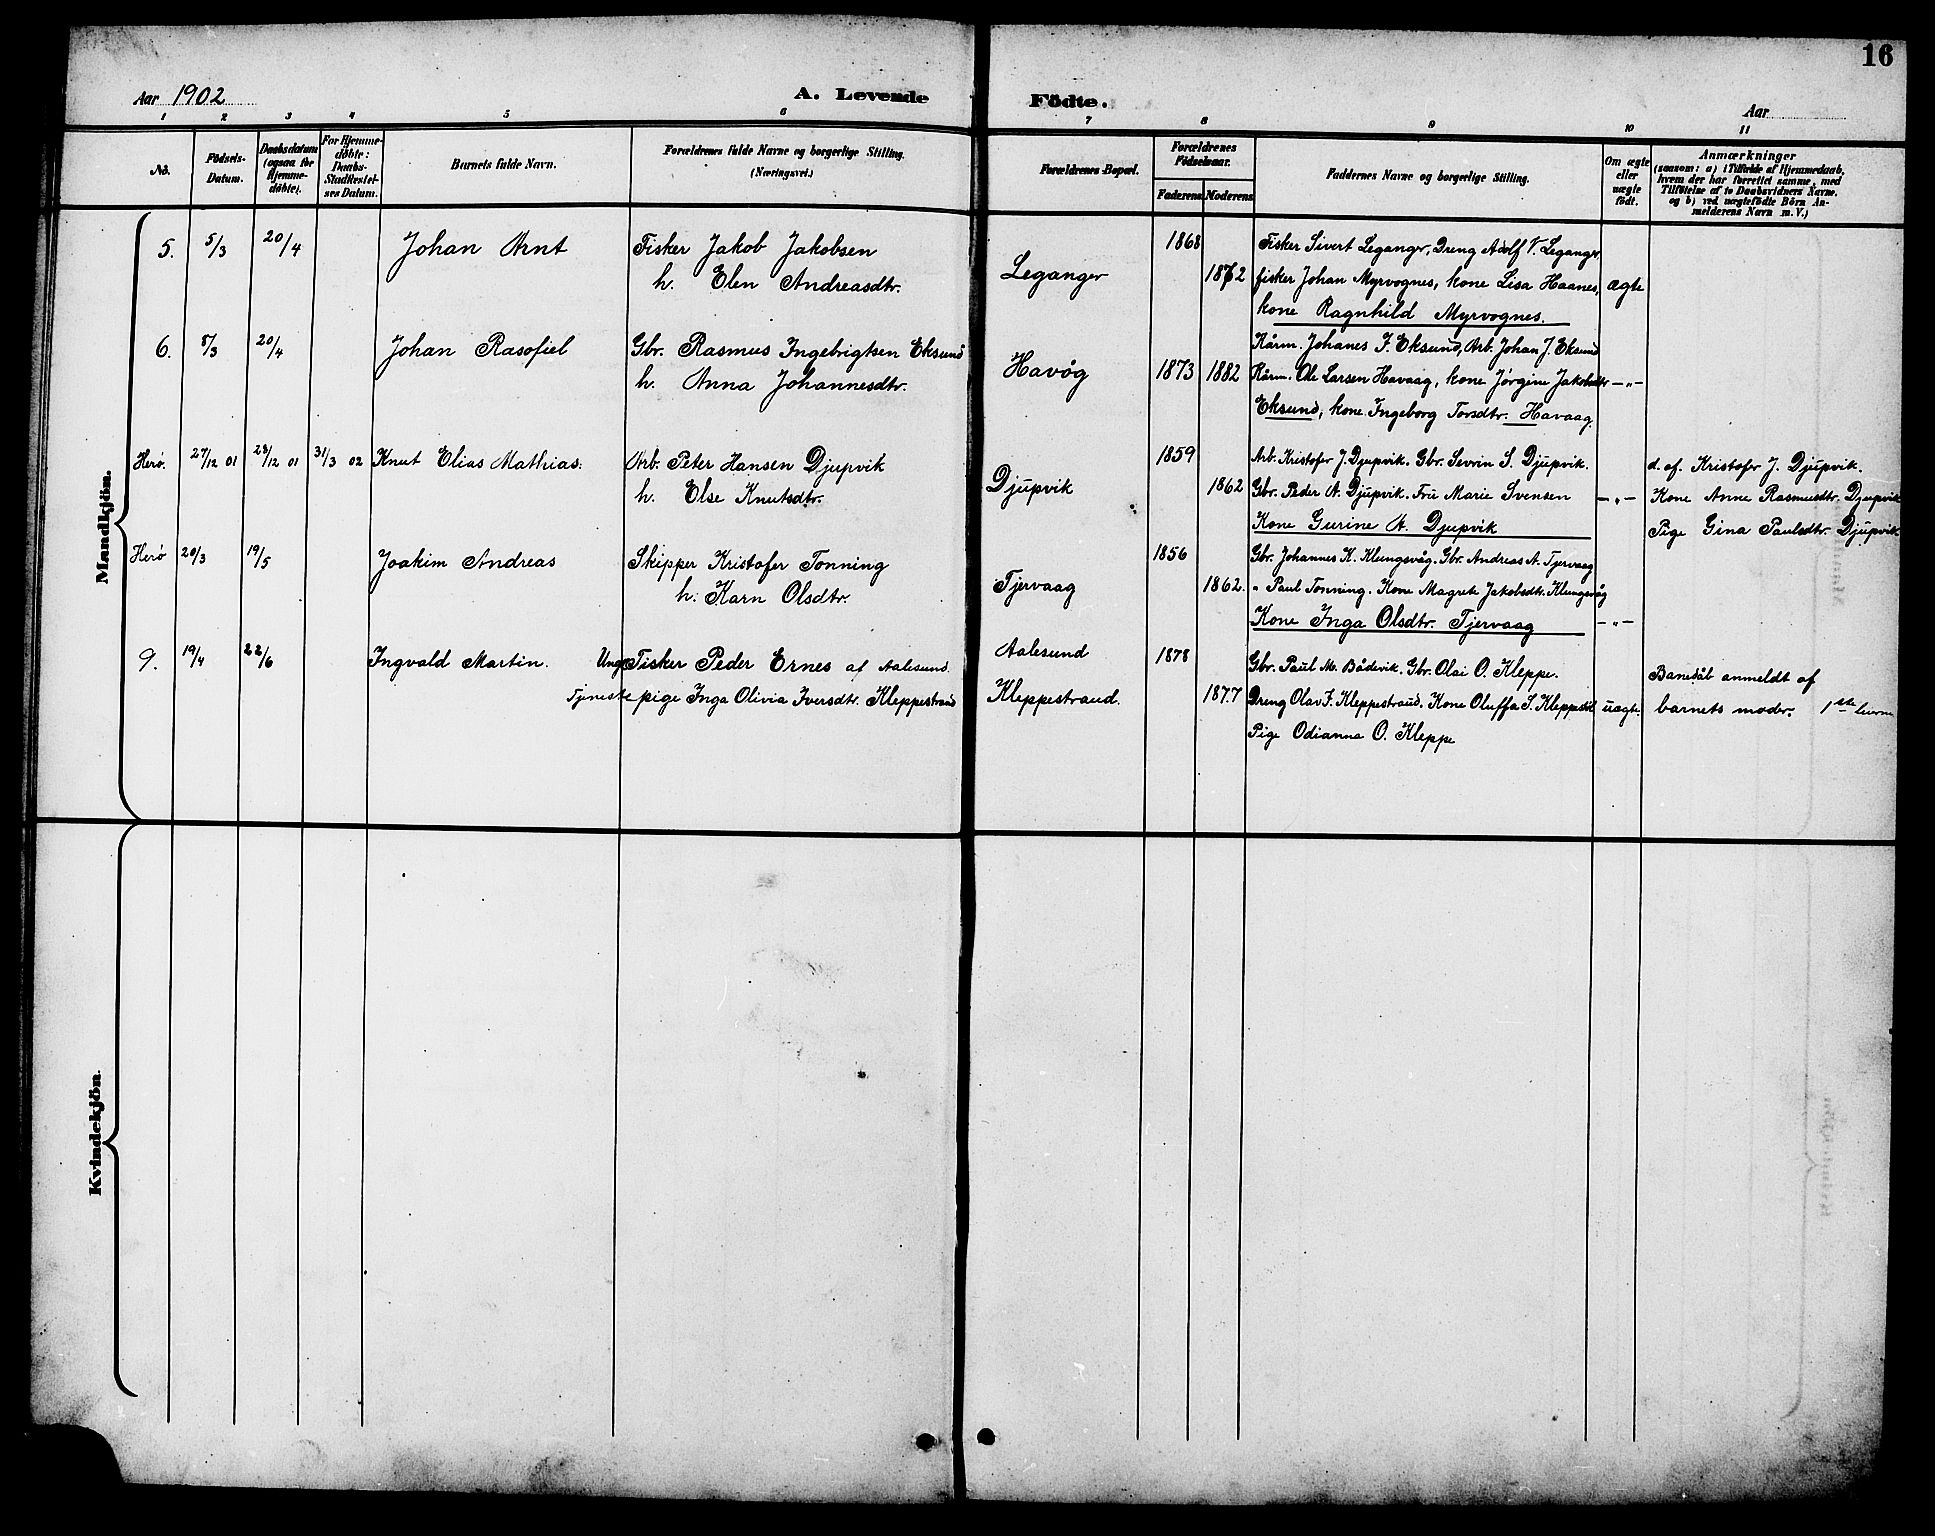 16
Aar 1902
A. Levende
Födte.
Aar
1 2 3 4 5 6 7 8 9 10 11
No.
Födsels-Datum.
Daabsdatum (ogsaa for Hjemme-döbte).
For Hjemme-döbte: Daabs-Stadfæstel-ses Datum.
Barnets fulde Navn.
Forældrenes fulde Navne og borgerlige Stilling.
(Næringsvei.)
Forældrenes Bopæl.
Forældrenes Födselsaar.
Faderens Moderens
Faddernes Navne og borgerlige Stilling.
Om ægte eller uægte födt.
Anmærkninger
(saasom: a) i Tilfælde af Hjemmedaab,
hvem der har forrettet samme, med
Tilföielse af to Daabsvidners Navne,
og b) ved uægtefödte Börn An-
melderens Navn m. V.)
Mandkjön.
5. 5/3 20/4 Johan Arnt Fisker Jakob Jakobsen
h. Elen Andreasdtr.
Leganger 1868 1872
Fisker Sivert Leganger, Dreng Adolf V. Leganger.
fisker Johan Myrvognes, kone Lisa Haanes, ægte
kone Ragnhild Myrvognes.
6. 8/3 20/4 Johan Rasofiel Gbr. Rasmus Ingebrigtsen Eksund
h. Anna Johannesdtr.
Havåg 1873 1882
Kårm. Johanes J. Eksund, Arb. Johan J. Eksund
Kårm. Ole Larsen Havaag, kone Jørgine Jakobsdtr -"-
Eksund, kone Ingeborg Torsdtr. Havaag.
Herø. 27/12 01 28/12 01 31/3 02 Knut Elias Mathias. Arb. Peter Hansen Djupvik
h. Else Knutsdtr.
Djupvik 1859 1862
Arb. Kristofer J. Djupvik. Gbr. Sevrin S. Djupvik.
Gbr. Peder A. Djupvik. Fru Marie Svensen -"-
Kone Gurine A. Djupvik
d. af. Kristofer J. Djupvik.
Kone Anne Rasmusdtr. Djupvik
Pige Gina Paulsdtr. Djupvik
Herø 20/3 19/5 Joakim Andreas Skipper Kristofer Tonning
h. Karn Olsdtr.
Tjervaag 1856 1862.
Gbr. Johannes K. Klungsvåg. Gbr. Andreas A. Tjervaag
" Paul Tonning. Kone Magrete Jakobsdtr. Klungsvåg
Kone Inga Olsdtr. Tjervaag -"-
9. 19/4 22/6 Ingvald Martin. Ung. Fisker Peder Ernes af Aalesund.
Tjenestepige Inga Olivia Iversdtr. Kleppestrand
Aalesund 1878
Kleppestrand. 1877
Gbr. Paul M. Bådsvik. Gbr. Olai O. Kleppe.
Dreng Olav J. Kleppestrand. Kone Oluffa S. Kleppestd uægte.
Pige Odianna O. Kleppe
Barnefål anmeldt af
barnets moder. 1ste
Kvindekjön.